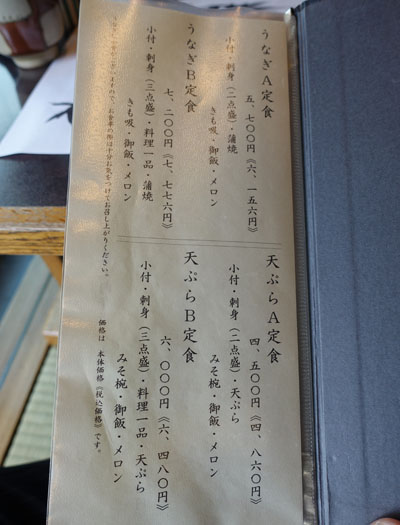 うなぎA定食
五、七〇〇円《六、一五六円》
小付・刺身(二点盛)・蒲焼
きも吸・御飯・メロン
うなぎB定食
七、二〇〇円《七、七七六円》
小付・刺身(三点盛)・料理一品・蒲焼
きも吸・御飯・メロン
天ぷらA定食
四、五〇〇円《四、八六〇円》
小付・刺身(二点盛)・天ぷら
みそ椀・御飯・メロン
天ぷらB定食
六、〇〇〇円《六、四八〇円》
小付・刺身(三点盛)・料理一品・天ぷら
みそ椀・御飯・メロン
お食事の際は十分お気をつけてお召し上がりください。
価格は 本体価格《税込価格》です。